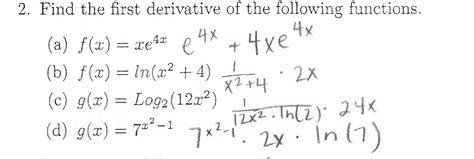 2. Find the first derivative of the following functions.
(a) f(x) = xe^{4x} e^{4x} + 4xe^{4x}
(b) f(x) = ln(x² + 4) 1/(x²+4) · 2x
(c) g(x) = Log₂(12x²) 1/(12x² · ln(2)) · 24x
(d) g(x) = 7^{x²−1} 7^{x²-1} · 2x · ln(7)